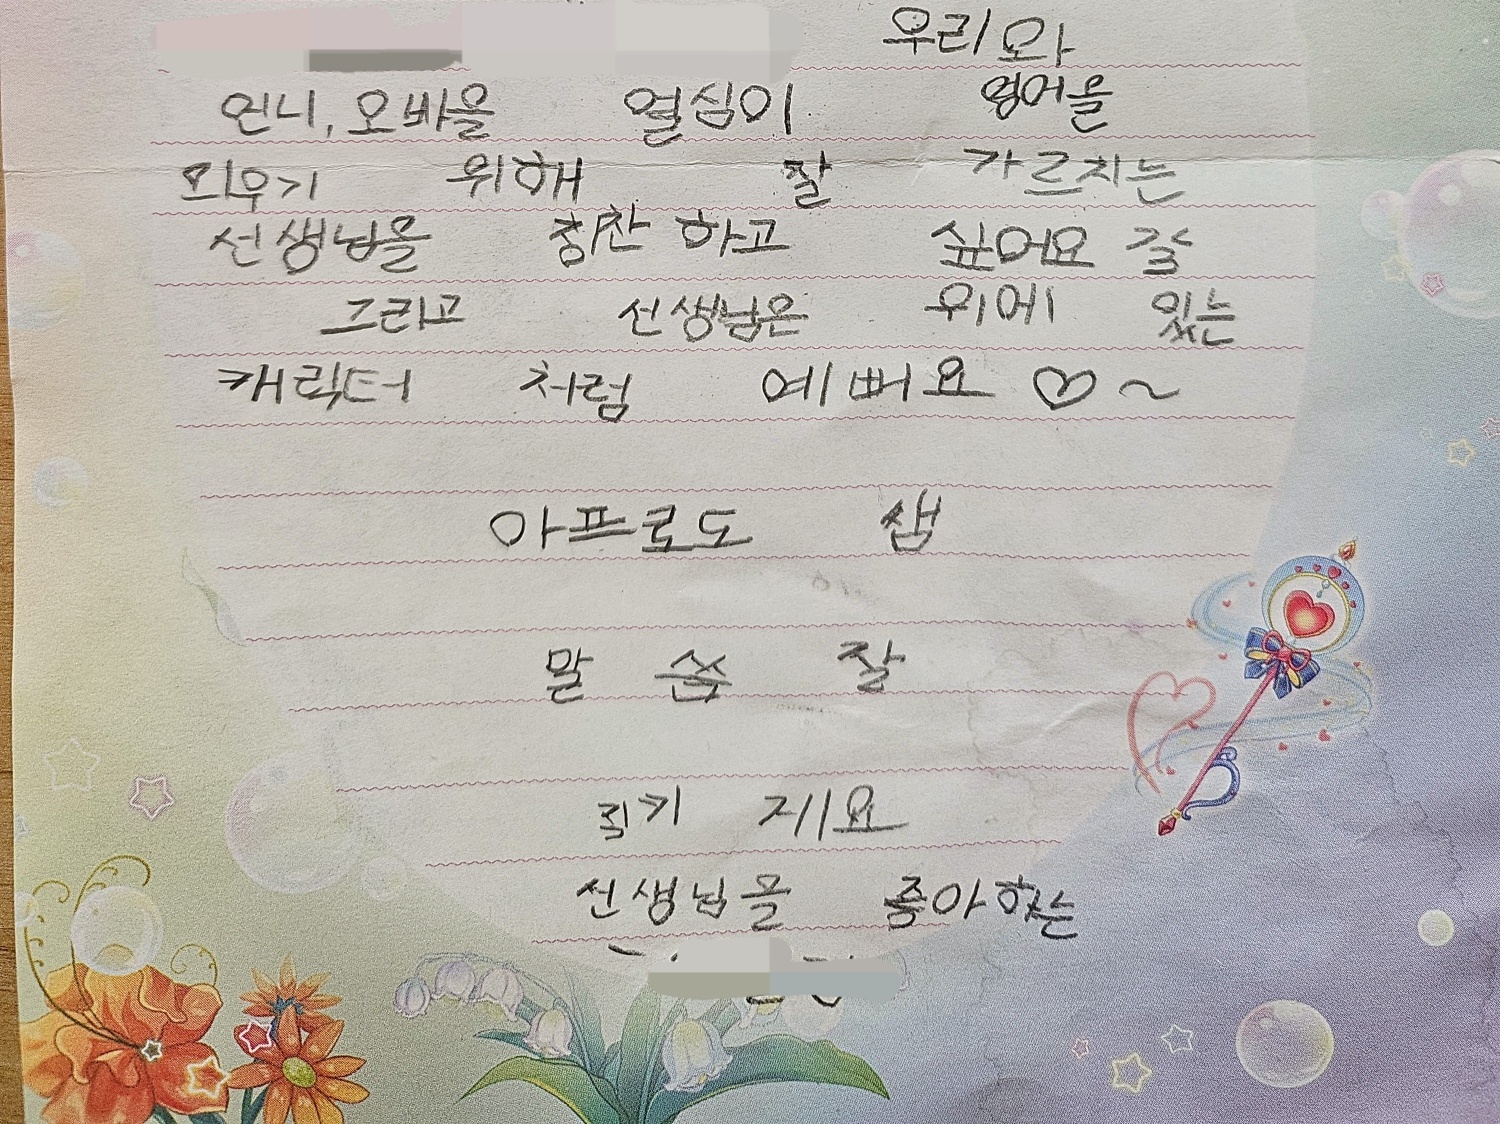 우리와
언니, 오빠을 열심이 영어을
끼우기 위해 잘 가르치는
선생님을 칭찬 하고 싶어요
그리고 선생님은 위에 있는
캐릭터 처럼 예뻐요 ♡~
아프로도 샘
말 씀 잘
직키 게요
선생님을 좋아하는